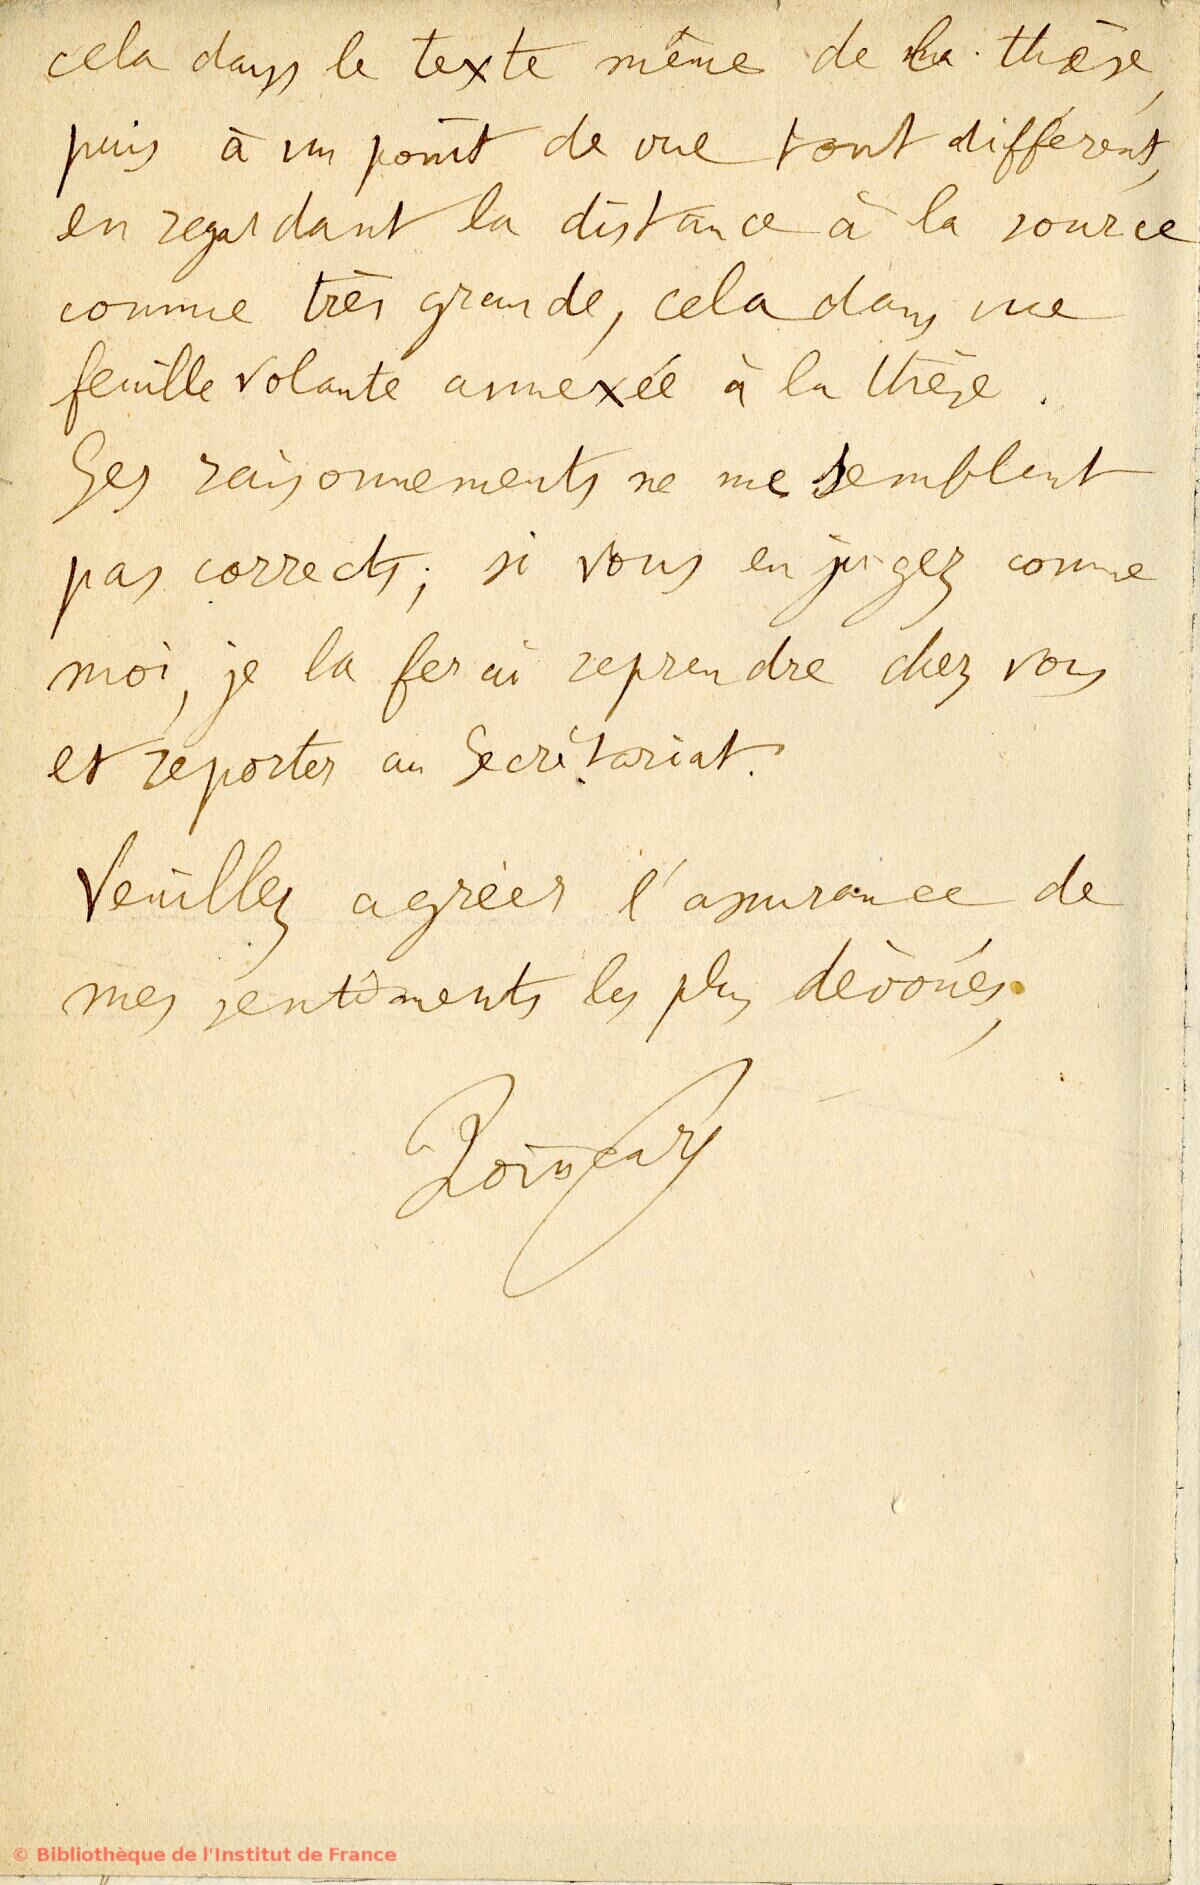 cela dans le texte même de la thèse,
puis à un point de vue tout différent,
en regardant la distance à la source
comme très grande, cela dans une
feuille volante annexée à la thèse.
Ses raisonnements ne me semblent
pas corrects; si vous en jugez comme
moi, je la ferai reprendre chez vous
et reporter au Secrétariat.
Veuillez agréer l'assurance de
mes sentiments les plus dévoués,
Poincaré
© Bibliothèque de l'Institut de France